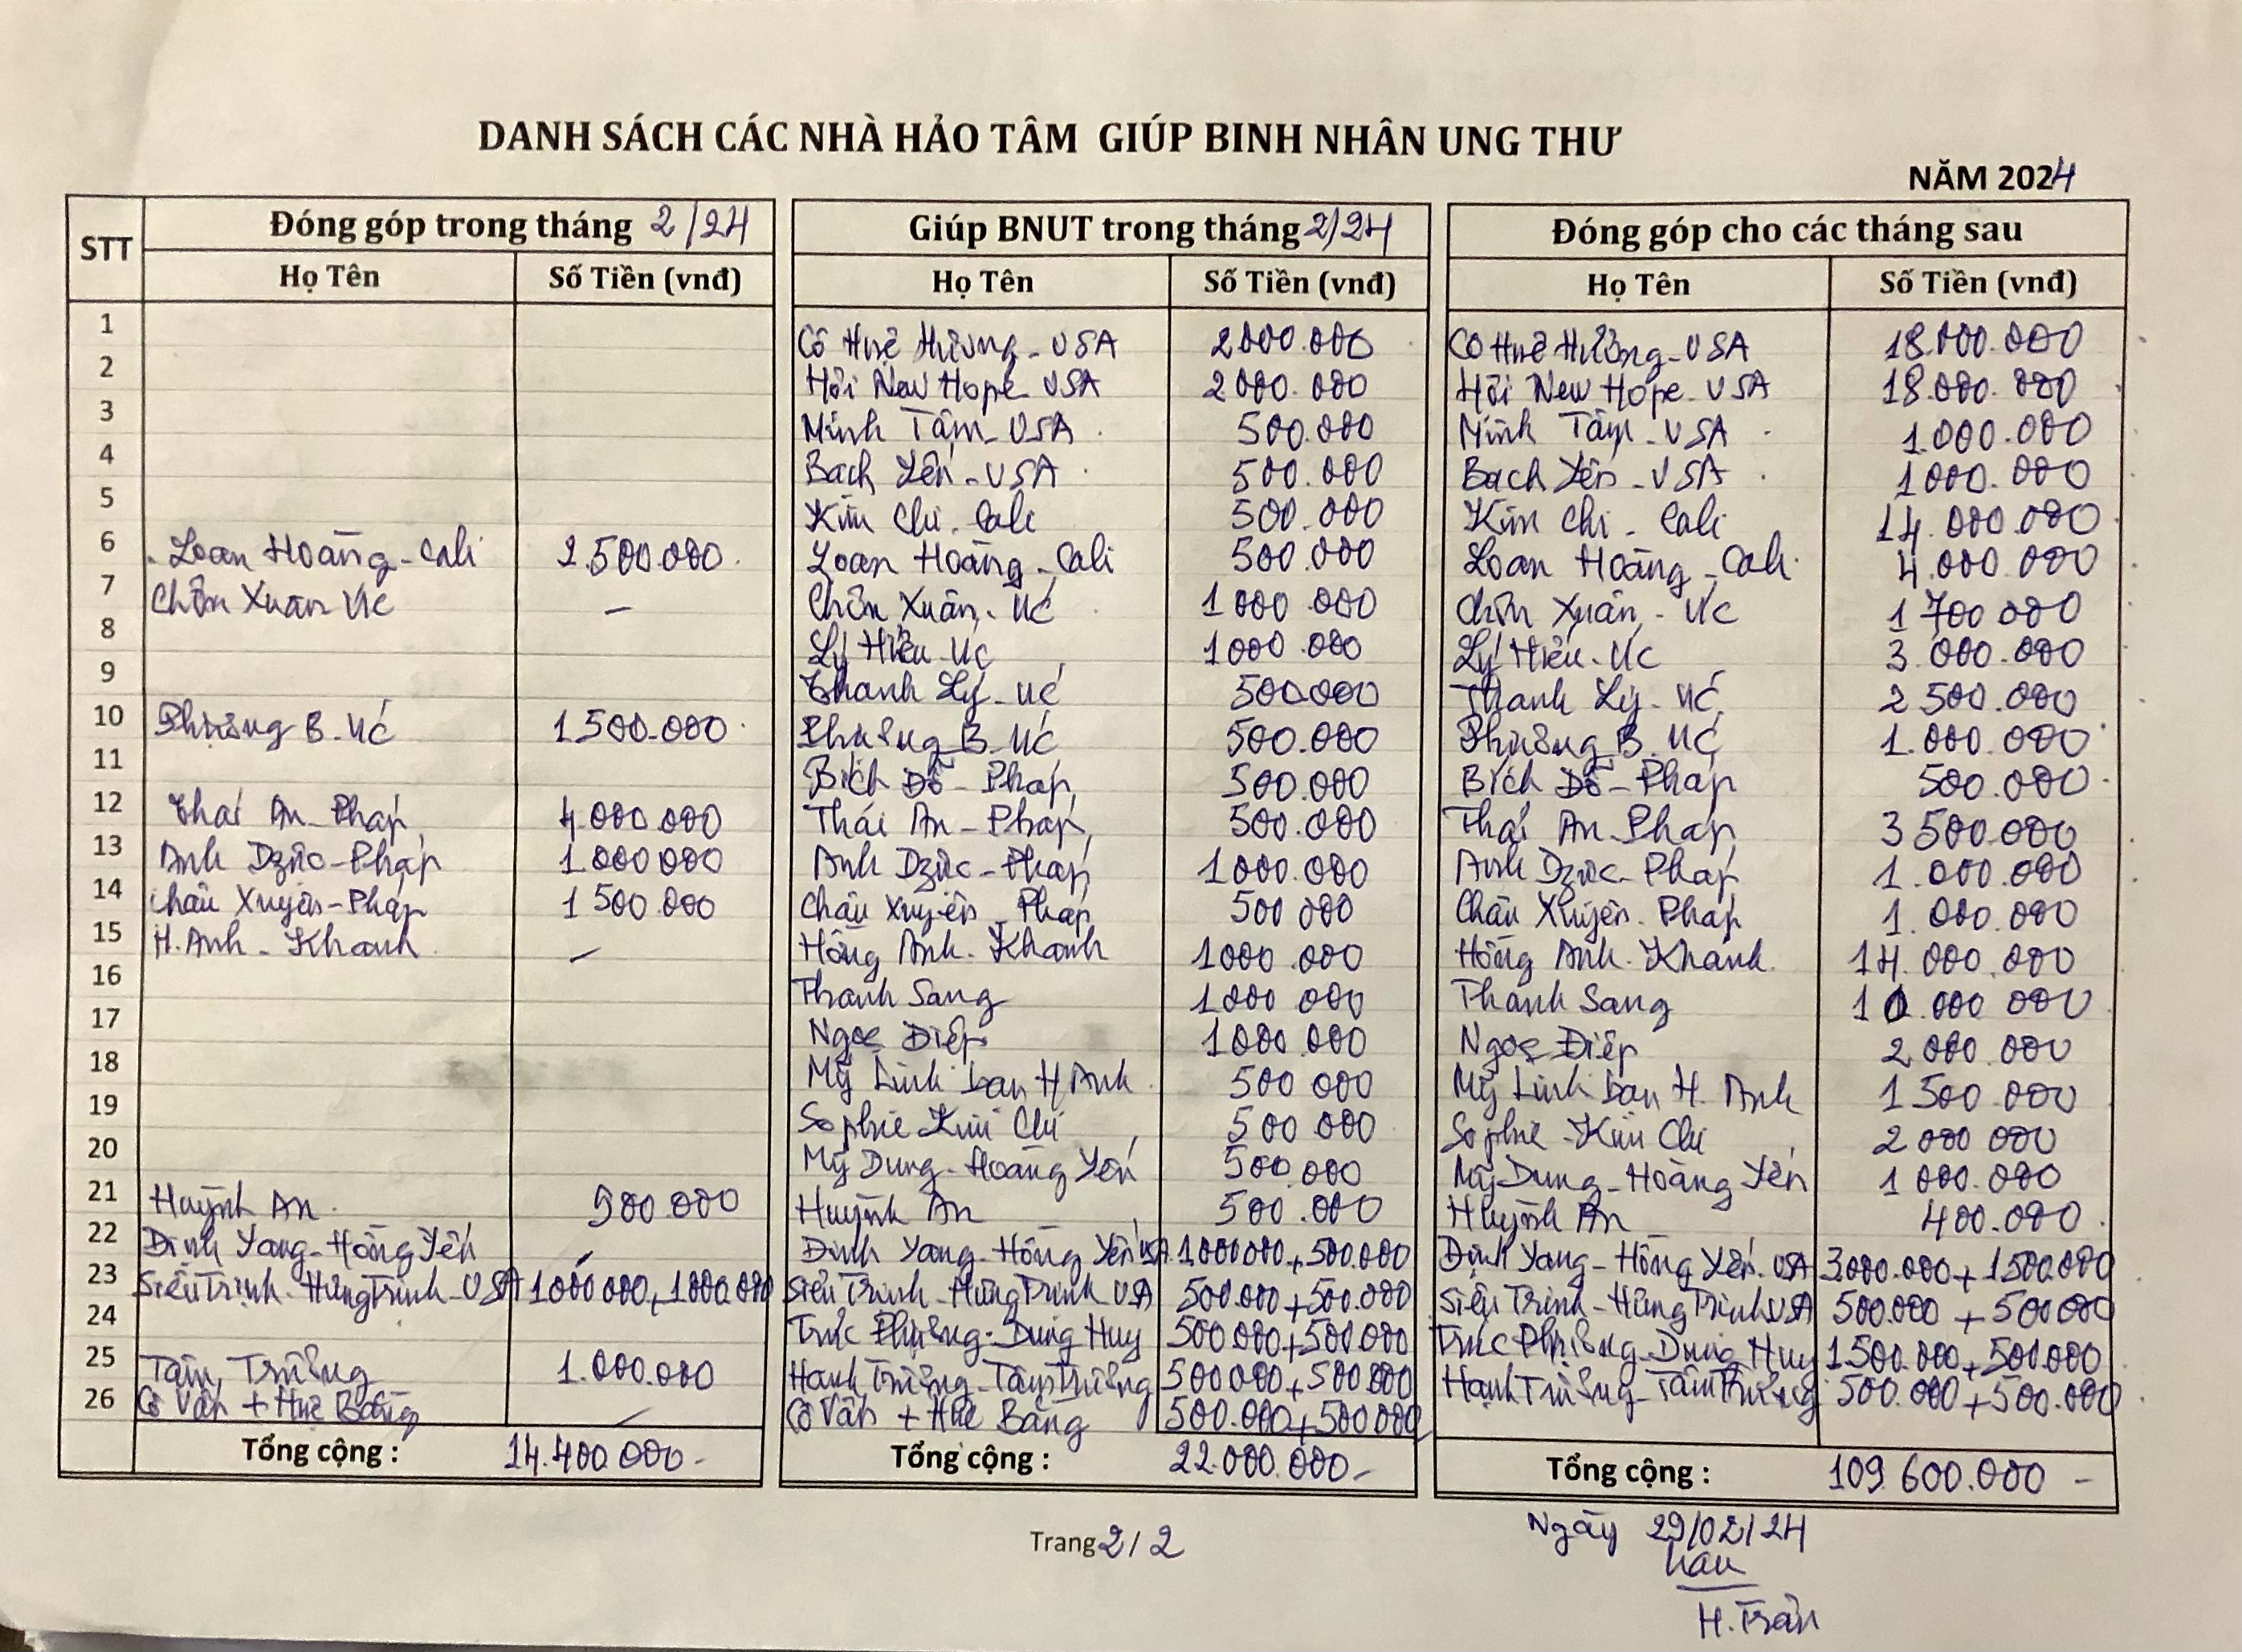 DANH SÁCH CÁC NHÀ HẢO TÂM GIÚP BINH NHÂN UNG THƯ
NĂM 2024
STT Đóng góp trong tháng 2/24 Giúp BNUT trong tháng 2/24 Đóng góp cho các tháng sau
Họ Tên Số Tiền (vnđ) Họ Tên Số Tiền (vnđ) Họ Tên Số Tiền (vnđ)
1 Cô Huệ Hương - USA 2000.000 Cô Huệ Hương - USA 18.000.000
2 Hội New Hope - USA 2000.000 Hội New Hope - USA 18.000.000
3 Minh Tâm - USA 500.000 Minh Tâm - USA 1.000.000
4 Bạch Yến - USA 500.000 Bạch Yến - USA 1000.000
5 Kim Chi - Cali 500.000 Kim Chi - Cali 14.000.000
6 Loan Hoàng - Cali 2.500.000 Loan Hoàng - Cali 500.000 Loan Hoàng - Cali 4.000.000
7 Chơn Xuân Úc – Chơn Xuân - Úc 1000.000 Chơn Xuân - Úc 1 700 000
8 Lý Hiếu - Úc 1000.000 Lý Hiếu - Úc 3.000.000
9 Thanh Lý - Úc 500000 Thanh Lý - Úc 2 500.000
10 Phượng B - Úc 1.500.000 Phượng B - Úc 500.000 Phượng B - Úc 1.000.000
11 Bích Đỗ - Pháp 500.000 Bích Đỗ - Pháp 500.000
12 Thái An - Pháp 4.000.000 Thái An - Pháp 500.000 Thái An - Pháp 3 500.000
13 Anh Dzũc - Pháp 1.000.000 Anh Dzũc - Pháp 1000.000 Anh Dzũc - Pháp 1.000.000
14 Châu Xuyên - Pháp 1 500.000 Châu Xuyên - Pháp 500 000 Châu Xuyên - Pháp 1.000.000
15 H. Anh - Khanh – Hồng Anh - Khanh 1000.000 Hồng Anh - Khanh 14.000.000
16 Thanh Sang 1000 000 Thanh Sang 10.000 000
17 Ngọc Điệp 1000.000 Ngọc Điệp 2 000.000
18 Mỹ Linh bạn H Anh 500 000 Mỹ Linh bạn H. Anh 1 500 000
19 Sophie Kim Chi 500 000 Sophie Kim Chi 2 000 000
20 Mỹ Dung - Hoàng Yến 500.000 Mỹ Dung - Hoàng Yến 1 000.000
21 Huỳnh An 900.000 Huỳnh An 500.000 Huỳnh An 400.000
22 Đinh Yang - Hồng Yến – Đinh Yang - Hồng Yến USA 1000000 + 500.000 Đinh Yang - Hồng Yến USA 3.000.000 + 1500.000
23 Siêu Trịnh - Hưng Trịnh - USA 1000 000 + 1000.000 Siêu Trịnh - Hưng Trịnh USA 500.000 + 500.000 Siêu Trịnh - Hưng Trịnh USA 500.000 + 500000
24 Trúc Phương - Dung Huy 500 000 + 500000 Trúc Phương - Dung Huy 1500.000 + 500.000
25 Tâm Trương 1.000.000 Hạnh Trương - Tâm Trương 500000 + 500 000 Hạnh Trương - Tâm Trương 500.000 + 500.000
26 Cô Vân + Huê Bằng – Cô Vân + Huê Bằng 500.000 + 500000
Tổng cộng : 14.400.000 - Tổng cộng : 22.000.000 - Tổng cộng : 109 600.000 -
Trang 2 / 2 Ngày 29/02/24
H. Trân